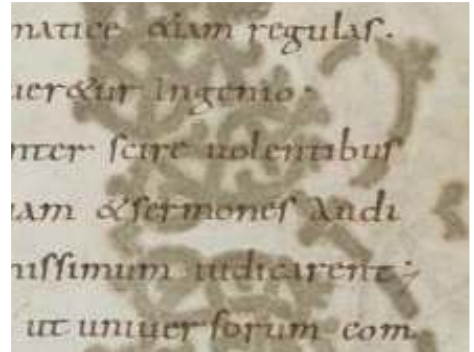 matice &iam regulas.
uer&ur ingenio.
nter scire uolentibus
uam & sermones audi
nissimum iudicarent;
ut uniuersorum com